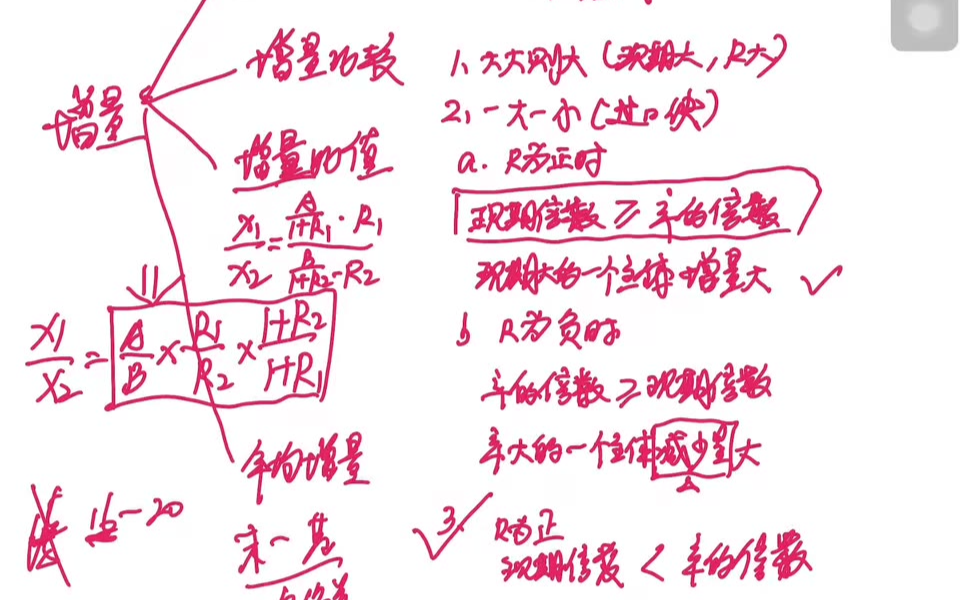 增量
增量比较
增量的值
x₁/x₂ = (A/(1+R₁)·R₁)/(B/(1+R₂)·R₂)
x₁/x₂ = A/B × R₁/R₂ × (1+R₂)/(1+R₁)
年均增量
末-基
16-20
1、大大则大（现期大，R大）
2、一大一小（
a. R为正时
现期倍数 ≥ 率的倍数
现期大的一个主体增量大 ✓
b R为负时
率的倍数 ≥ 现期倍数
率大的一个主体减少量大
✓ 3. R为正
现期倍数 < 率的倍数